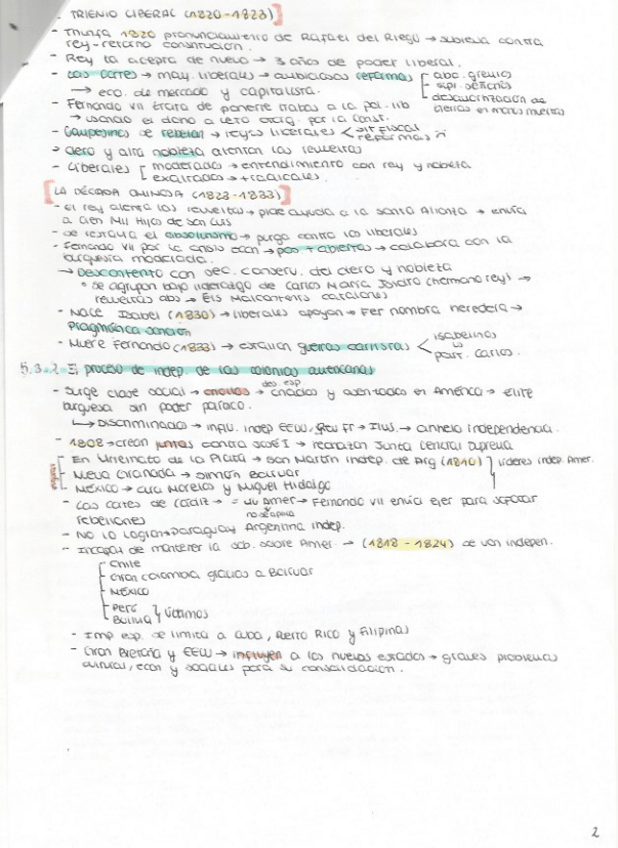 - TRIENIO LIBERAL (1820-1823)]
- Triunfa 1820 pronunciamiento de Rafael del Riego → subleva contra
rey - retorno constitución.
- Rey la acepta de nuevo → 3 años de poder liberal.
- Las Cortes → may. liberales → ambiciosas reformas [ abo. gremios
supr. señoríos
desvinculación de
tierras en manos muertas
→ eco. de mercado y capitalista.
- Fernando VII trata de ponerle trabas a la pol. lib
→ usando el dcho a veto otorg. por la const.
- Campesinos se rebelan → leyes liberales < fiscal
reformas
→ clero y alta nobleza alientan las revueltas
- Liberales [ moderados → entendimiento con rey y nobleza
exaltados → + radicales.
[LA DÉCADA OMINOSA (1823-1833)]
- El rey alienta las revueltas → pide ayuda a la Santa Alianza → envía
a Cien Mil Hijos de San Luis
- Se restaura el absolutismo → purga contra los liberales
- Fernando VII por la crisis econ → pos + abiertas → colabora con la
burguesía moderada.
→ Descontento con sec. conserv. del clero y nobleza
* se agrupan bajo liderazgo de Carlos María Isidro (hermano rey) →
revueltas abs → Els Malcontents catalanes
- Nace Isabel (1830) → liberales apoyan → Fer nombra heredera →
Pragmática sanción
- Muere Fernando (1833) → estallan guerras carlistas < isabelinos
vs
part. Carlos.
5.3.2 El proceso de indep. de las colonias americanas
- Surge clase social → criollos → criados y asentados en América → élite
des. esp
burguesa sin poder
↳ Discriminados → influ. indep EEUU, Rev Fr → Ilus. → anhelo independencia.
- 1808 → crean juntas contra José I → rechazan Junta Central Suprema
En Virreinato de la Plata → San Martín indep. de Arg (1810)
Nueva Granada → Simón Bolívar
México → cura Morelos y Miguel Hidalgo
líderes indep. Amer.
- Las Cortes de Cádiz → = Amer → Fernando VII envía ejer para sofocar
rebeliones
- No lo logran → Paraguay Argentina indep.
- Incapaz de mantener la sob. sobre Amer. → (1818 - 1824) se van indepen.
Chile
Gran Colombia gracias a Bolívar
México
Perú
Bolivia } últimos
- Imp esp. se limita a Cuba, Puerto Rico y Filipinas
- Gran Bretaña y EEUU → influyen a los nuevos estados → graves problemas
cultural, econ y sociales para su consolidación.
2